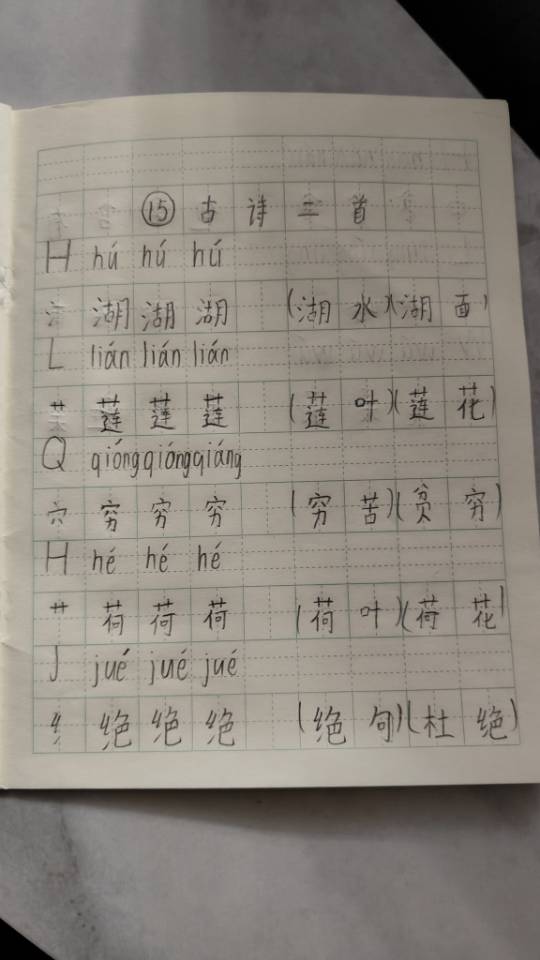 ⑮ 古诗二首
H hú hú hú
氵 湖 湖 湖 (湖水)(湖面)
L lián lián lián
艹 莲 莲 莲 (莲叶)(莲花)
Q qióng qióng qiáng
穴 穷 穷 穷 (穷苦)(贫穷)
H hé hé hé
艹 荷 荷 荷 (荷叶)(荷花)
J jué jué jué
纟 绝 绝 绝 (绝句)(杜绝)